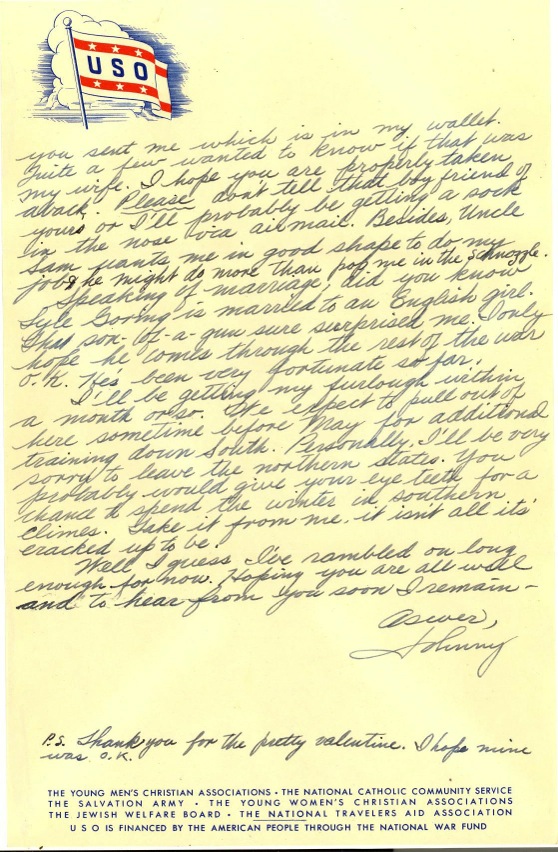 USO
you sent me which is in my wallet.
Quite a few wanted to know if that was
my wife. I hope you are properly taken
aback. Please don't tell that boy friend of
yours or I'll probably be getting a sock
in the nose via airmail. Besides, Uncle
Sam wants me in good shape to do my
job & he might do more than pop me in the schnozzle.
Speaking of marriage, did you know
Lyle Goving is married to an English girl.
That son-of-a-gun sure surprised me. I only
hope he comes through the rest of the war
O.K. He's been very fortunate so far.
I'll be getting my furlough within
a month or so. We expect to pull out of
here sometime before May for additional
training down South. Personally, I'll be very
sorry to leave the northern states. You
probably would give your eye teeth for a
chance to spend the winter in southern
climes. Take it from me, it isn't all its'
cracked up to be.
Well, I guess I've rambled on long
enough for now. Hoping you are all well
and to hear from you soon I remain -
As ever,
Johnny
P.S. Thank you for the pretty valentine. I hope mine
was O.K.
THE YOUNG MEN'S CHRISTIAN ASSOCIATIONS · THE NATIONAL CATHOLIC COMMUNITY SERVICE
THE SALVATION ARMY · THE YOUNG WOMEN'S CHRISTIAN ASSOCIATIONS
THE JEWISH WELFARE BOARD · THE NATIONAL TRAVELERS AID ASSOCIATION
USO IS FINANCED BY THE AMERICAN PEOPLE THROUGH THE NATIONAL WAR FUND